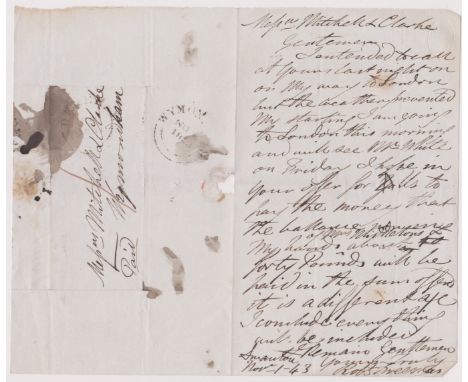 Messrs Mitchell & Clarke
Gentlemen
I intended to call
at yours last night on
on my way to London
but the weather prevented
my starting I am going
to London this morning
and will see Mr White
on Friday I hope in
your offer for to
pay the money that
the balance
my hands about
forty Pounds will be
paid in the sum offered
it is a different
I conclude everything
will be included
Remain Gentlemen
Yours truly
Novr 1-43 Robt Freeman
Messrs Mitchell & Clarke
Wymondham
Paid
WYMON
NO